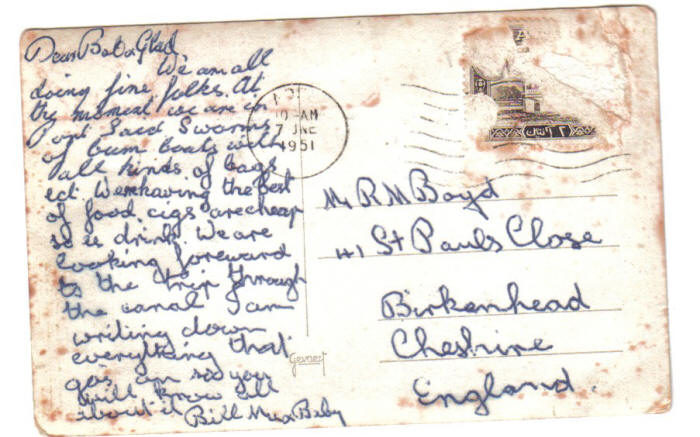 Dear Bob & Glad
We am all
doing fine folks. At
the moment we are in
Port Said Swarms
of bum boats with
all kinds of bags
ect. We having the best
of food, cigs are cheap
so is drink. We are
looking foreward
to the trip through
the canal I am
writing down
everything that
gos on so you
will know all
about it
Bill Mu & Baby
10-AM
7 JNE
1951
Mr R M Boyd
41 St Pauls Close
Birkenhead
Cheshire
England.
Gevaert